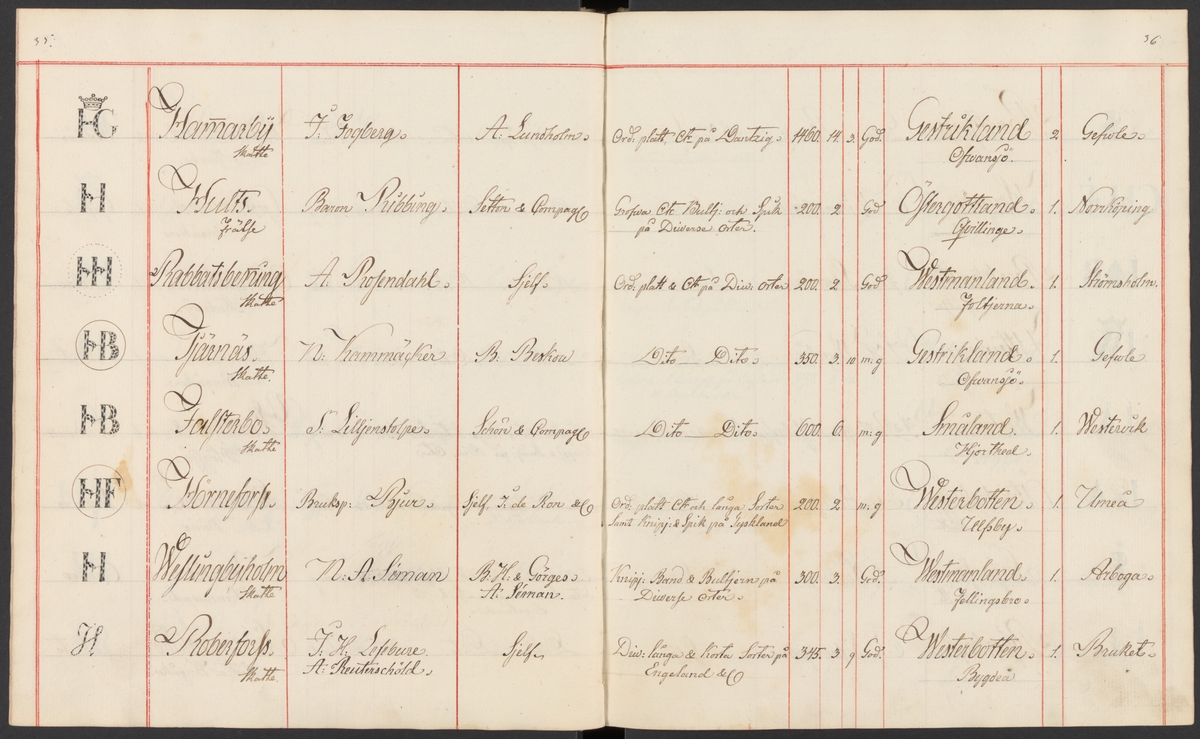 35.
36
HG Hammarbÿ F. Fogberg. A. Lundholm. Ord: platt, Ctt på Dantzig. 1460. 14. 3. God. Gestrikland 2 Gefwle.
Skatte Ofwansjö.
H Hults. Baron Ribbing. Setton & Compag&C Grofwa Ctt Bultj: och Spik 200. 2 God Östergöttland. 1. Norrköping
frälse på Diwerse orter. Qvillinge.
HH Rabbatsbenning A. Rosendahl. Sjelf. Ord: platt & Ctt på Diw: orter 200. 2 God Westmanland. 1. Strömsholm.
Skatte
HB Tjärnäs. N: Kammäcker B. Beskow Dito Dito. 350. 3. 10 m: g Gestrikland. 1. Gefwle
Skatte. Ofwansjö.
HB Falsterbo. S. Liljenstolpe. Schön & Compag&C Dito Dito. 600. 6. m: g Småland. 1. Westerwik
Skatte Hjorthed.
HF Hörneforss. Bruksp: Bjur. Sjelf, J. de Ron &C Ord: platt Ctt och långa Sorter 200. 2 m: g Westerbotten 1. Umeå
Samt Knipj: & Spik på Tyskland
H Westlingbyholm N: A. Séman B. H: & Görges. Knipj: Band & Bultjern på 300. 3. God. Westmanland. 1. Arboga.
Skatte A. Séman. Diwerse orter. Fellingsbro.
H Roberforss. F. H. Lefebure. Sjelf. Diw: långa & korta Sorter på 345. 3 9 God. Westerbotten. 1. Bruket.
Skatte A: Reuterschöld. Engeland &C Bygdeå